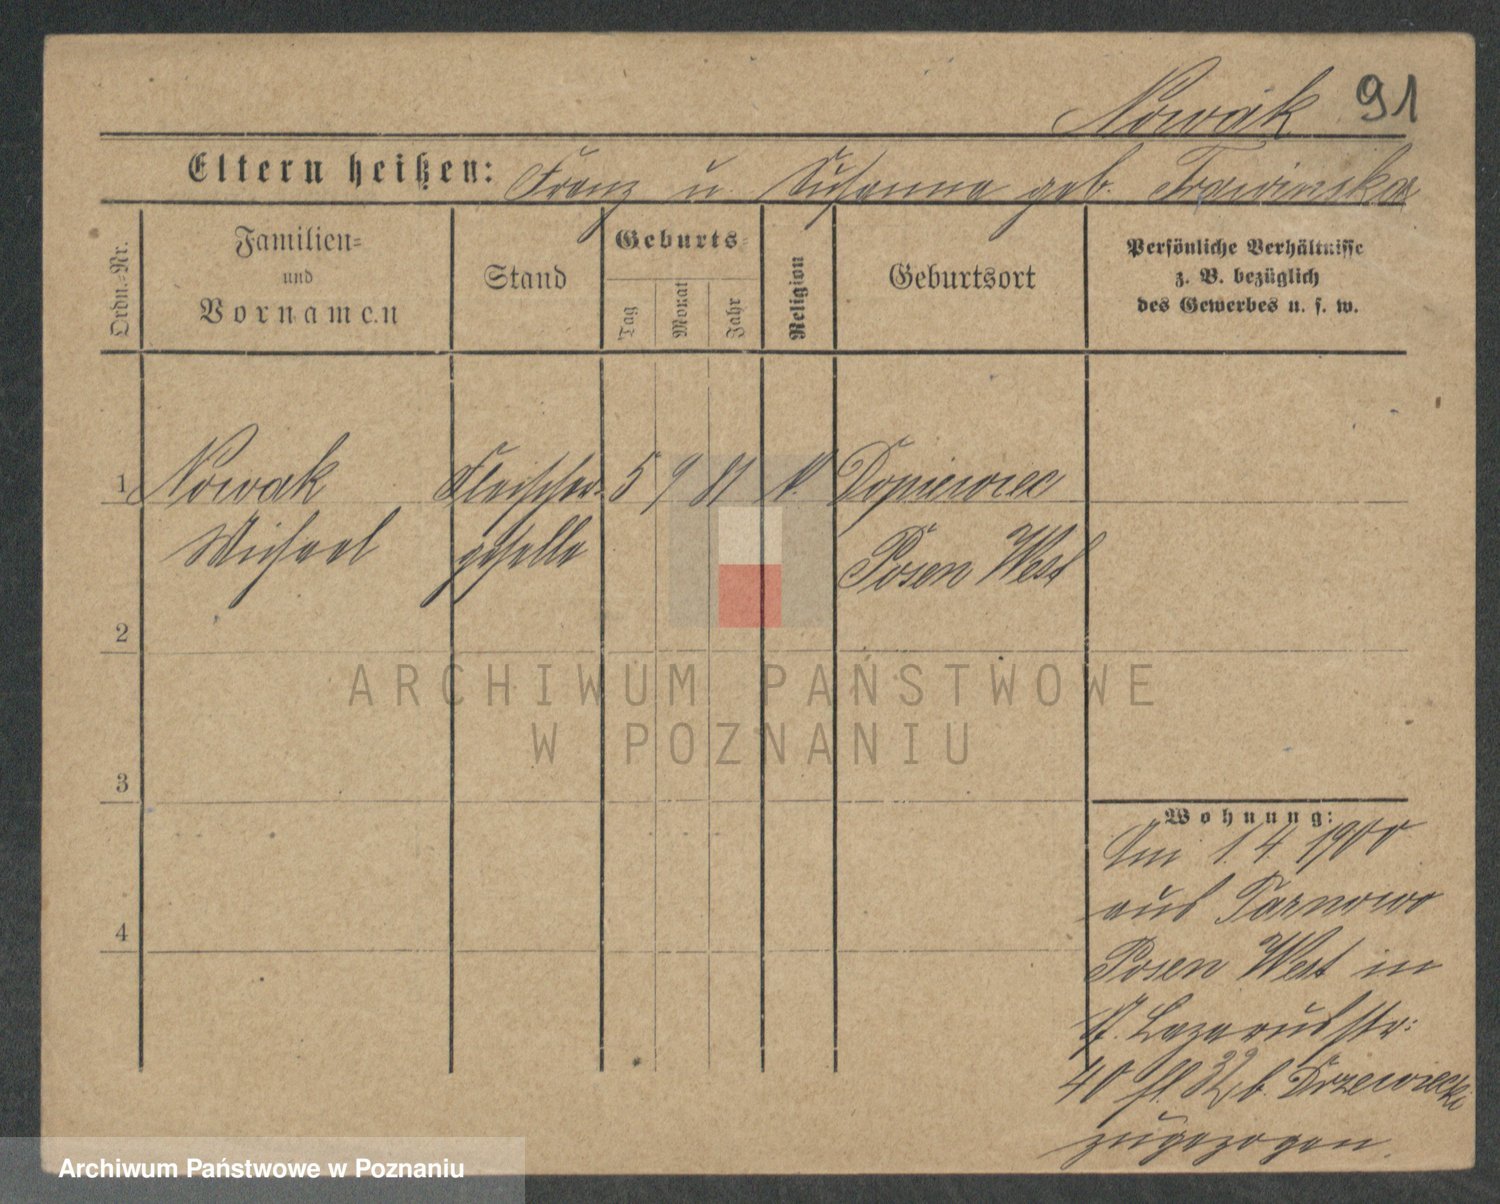 Nowak 91
Eltern heißen: Franz u. Susanna geb. Trawinska
Ordn.-Nr.
Familien=
und
Vornamen
Stand
Geburts=
Tag
Monat
Jahr
Religion
Geburtsort
Persönliche Verhältnisse
z. B. bezüglich
des Gewerbes u. s. w.
1 Nowak Fleischer- 5 9 81 k. Dopiewiec
Michael geselle Posen West
2
3
4
Wohnung:
Am 1. 4. 1900
aus Tarnowo
Posen West in
St. Lazarusstr:
40 b. Drzewiecki
zugezogen.
ARCHIWUM PAŃSTWOWE
W POZNANIU
Archiwum Państwowe w Poznaniu